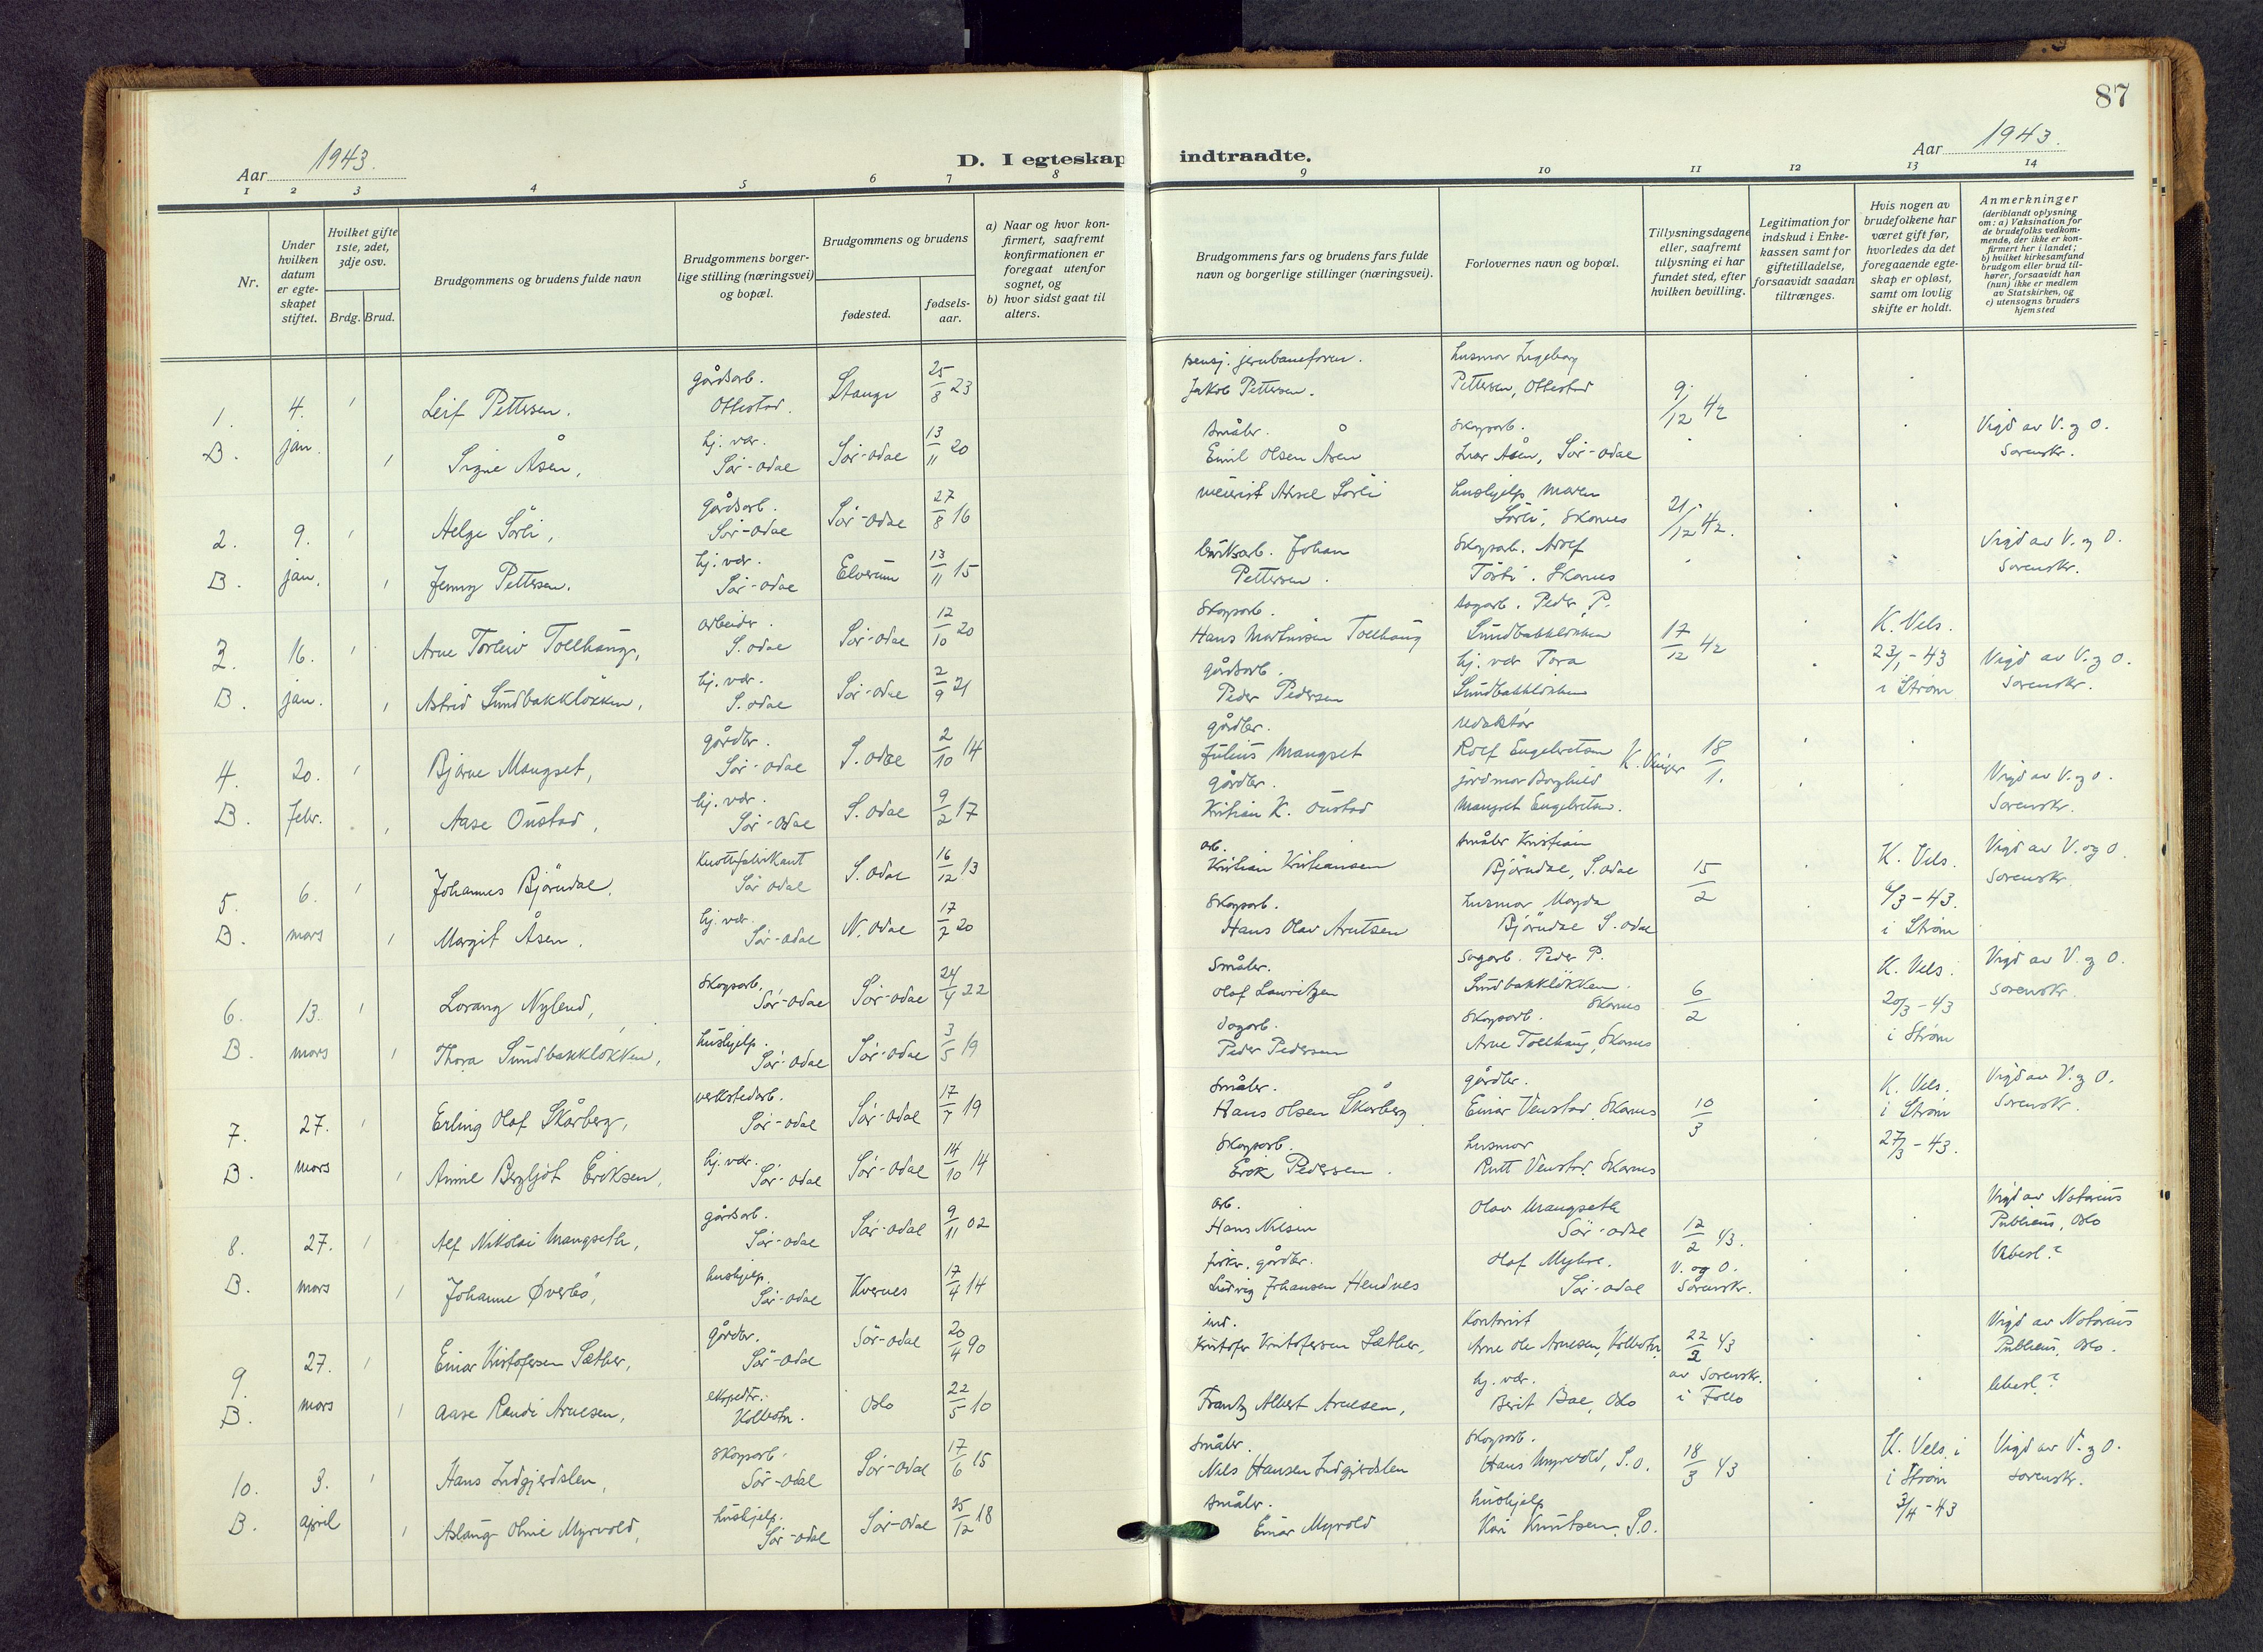 87
Aar 1943.
D. I egteskap indtraadte.
Aar 1943.
1 2 3 4 5 6 7 8 9 10 11 12 13 14
Nr.
Under hvilken datum er egteskapet stiftet.
Hvilket gifte 1ste, 2det, 3dje osv.
Brdg. Brud.
Brudgommens og brudens fulde navn
Brudgommens borgerlige stilling (næringsvei) og bopæl.
Brudgommens og brudens
fødested.
fødselsaar.
a) Naar og hvor konfirmert, saafremt konfirmationen er foregaat utenfor sognet, og
b) hvor sidst gaat til alters.
Brudgommens fars og brudens fars fulde navn og borgerlige stillinger (næringsvei).
Forlovernes navn og bopæl.
Tillysningsdagene eller, saafremt tillysning ei har fundet sted, efter hvilken bevilling.
Legitimation for indskud i Enkekassen samt for giftetilladelse, forsaavidt saadan tiltrænges.
Hvis nogen av brudefolkene har været gift før, hvorledes da det foregaaende egteskap er opløst, samt om lovlig skifte er holdt.
Anmerkninger
(deriblandt oplysning om: a) Vaksination for de brudefolks vedkommende, der ikke er konfirmert her i landet; b) hvilket kirkesamfund brudgom eller brud tilhører, forsaavidt han (hun) ikke er medlem av Statskirken, og c) utensogns bruders hjemsted
1. 4. 1 Leif Pettersen. gårdsarb. Ottestad. Stange 25/8 23 pensj. jernbaneform. Jakob Pettersen. husmor Ingeborg Pettersen, Ottestad 9/12 42
B. jan. 1 Signe Åsen, hj. vær. Sør-Odal Sør-Odal 13/11 20 småbr. Emil Olsen Åsen skogsarb. Åsen, Sør-Odal Vigd av V. og O. Sorenskr.
2. 9. 1 Helge Sørli, gårdsarb. Sør-Odal Sør-Odal 27/8 16 meierist Aksel Sørli hushjelp Maren Sørli, Skarnes 21/12 42.
B. jan. 1 Jenny Pettersen. hj. vær. Sør-Odal Elverum 13/11 15 bruksarb. Johan Pettersen. skogsarb. Skarnes Vigd av V. og O. Sorenskr.
3. 16. 1 Arne Torleiv Tollhaug, arbeider. S. Odal Sør-Odal 12/10 20 Skogsarb. Hans Martinsen Tollhaug sagarb. Peder P. Sundbakkløkken 17/12 42 K. Vels. 23/1 - 43 i Strøm
B. jan. 1 Astrid Sundbakkløkken, hj. vær. S. Odal Sør-Odal 2/9 21 gårdsarb. Peder Pedersen hj. vær Tora Sundbakkløkken Vigd av V. og O. Sorenskr.
4. 20. 1 Bjarne Mangset, gårdbr. Sør-Odal S. Odal 2/10 14 gårdbr. Julius Mangset redaktør Rolf Engebretsen K. Vinger 18/1.
B. febr. 1 Aase Oustad, hj. vær. Sør-Odal S. Odal 9/2 17 gårdbr. Kristian K. Oustad jordmor Borghild Mangset Engebretsen. Vigd av V. og O. Sorenskr.
5. 6. 1 Johannes Bjørndal. Knottfabrikant Sør Odal S. Odal 16/12 13 arb. Kristian Kristiansen småbr Kristian Bjørndal, S. Odal 15/2 K. Vels. 6/3 - 43. i Strøm Vigd av V. og O. Sorenskr.
B. mars 1 Margit Åsen. hj. vær. Sør-Odal N. Odal 17/7 20 skogsarb. Hans Olav Arntsen husmor Magda Bjørndal S. Odal
6. 13. 1 Lorang Nylend, skogsarb. Sør-Odal Sør-Odal 24/4 22 Småbr. Olaf Lauritzen sagarb. Peder P. Sundbakkløkken. Skarnes 6/2 K. Vels. 20/3 - 43 i Strøm Vigd av V. og O. Sorenskr.
B. mars 1 Thora Sundbakkløkken, hushjelp. Sør-Odal Sør-Odal 3/5 19 Sagarb. Peder Pedersen skogsarb. Arne Tollhaug, Skarnes
7. 27. 1 Erling Olaf Skårberg, verkstedarb. Sør-Odal Sør-Odal 17/7 19 Småbr. Hans Olsen Skårberg gårdbr. Einar Venstad, Skarnes 10/3 K. Vels. i Strøm 27/3 - 43. Vigd av V. og O. Sorenskr.
B. mars 1 Annie Bergljot Eriksen, hj. vær. Sør-Odal Sør-Odal 14/10 14 Skogsarb. Erik Pedersen. husmor Rutt Venstad, Skarnes
8. 27. 1 Alf Nikolai Mangseth, gårdsarb. Sør-Odal Sør-Odal 9/11 02 arb. Hans Nilsen Olav Mangseth Sør-Odal 12/2 43. Vigd av Notarius Publicus, Oslo
B. mars 1 Johanne Øverbø, hushjelp. Sør-Odal Kvernes 17/4 14 fisker. gårdbr. Ludvig Johansen Hendnes Olaf Myhre. Sør-Odal V. og O. Sorenskr.
9. 27. 1 Einar Kristofersen Sæther, gårdbr. Sør-Odal Sør-Odal 20/4 90 Kristofer Kristofersen Sæther, Kontorist Arne Ole Arnesen, Kolbotn 22/2 43 Vigd av Notarius Publicus, Oslo.
B. mars 1 Aase Randi Arnesen, ekspeditr. Kolbotn. Oslo 22/5 10 Frantz Albert Arnesen, hj. vær. Berit Boe, Oslo av Sorenskr. i Follo
10. 3. 1 Hans Indgjerdslen, skogsarb. Sør-Odal Sør-Odal 17/6 15 Småbr. Nils Hansen Indgjerdslen skogsarb. Hans Myrvold, S.O. 18/3 43 K. Vels. i i Strøm 3/4 - 43 Vigd av V. og O. sorenskr.
B. april 1 Aslaug Oline Myrvold, hushjelp. Sør-Odal Sør-Odal 25/12 18 småbr. Einar Myrvold hushjelp Kari Knutsen. S.O.